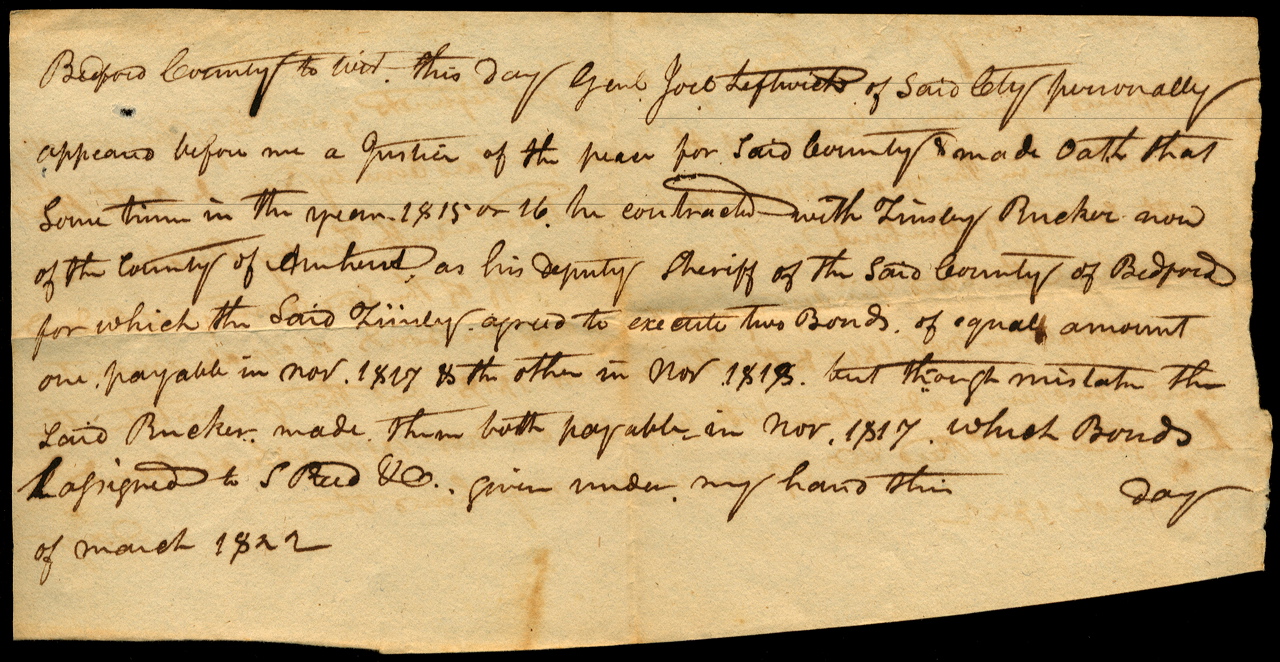 Bedford County to wit. this day Genl. Joel Leftwich of Said Cty personally
appeard before me a Justice of the peace for Said County & made Oath that
Some time in the year 1815 or 16. he contracted with Tinsley Rucker now
of the County of Amherst. as his deputy Sheriff of the Said County of Bedford
for which the Said Tinsley agreed to execute two Bonds. of equal amount
one. payable in nov. 1817 & the other in Nov 1818. but though mistake the
Said Rucker. made. them both payable in Nov. 1817. which Bonds
assigned to S Reed &Co. given under. my hand this day
of march 1822